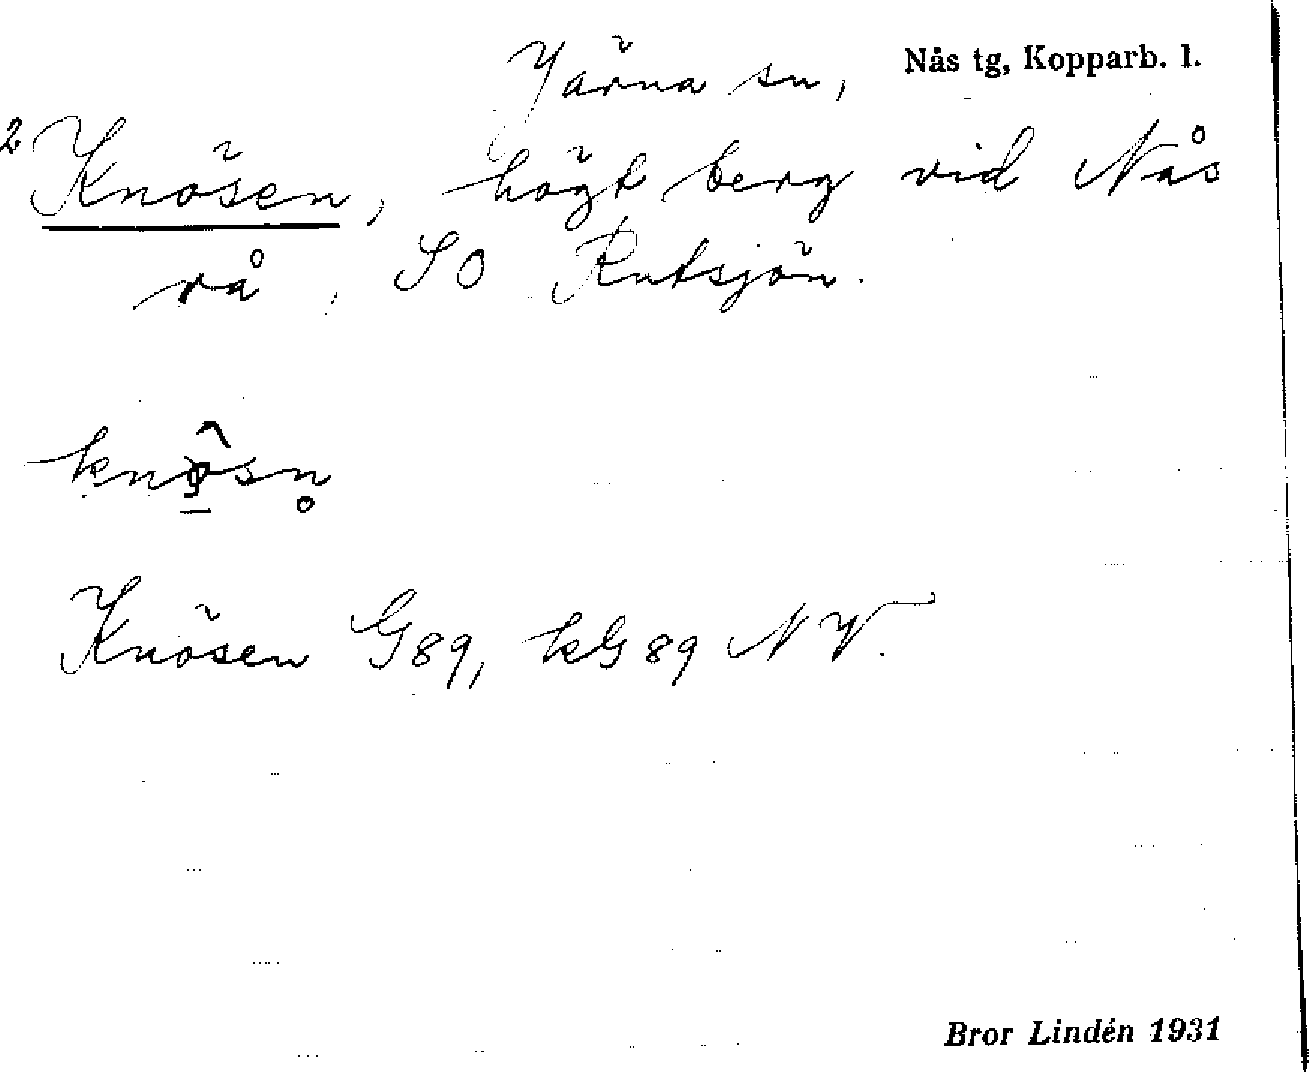 Järna sn, Nås tg, Kopparb. l.
2 Knösen, högt berg vid Nås
rå, SO Rutsjön.
Knösen G89, kG89 NV.
Bror Lindén 1931